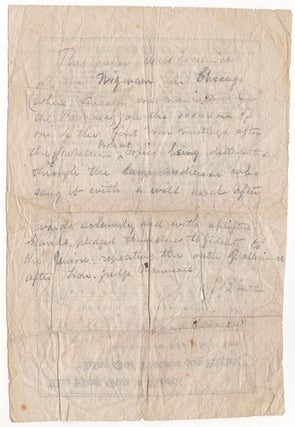 This paper was received
in the Wigwam in Chicago
(where Lincoln was nominated for
the Presidency) on the occasion of
one of the first war meetings after
the rebellion broke copies being distributed
through the large audience who
sang it with a will and after
wards solemnly and with uplifted
hands, pledged themselves to fidelity to
the Union, repeating the oath of allegiance
after Hon. Judge Manniere